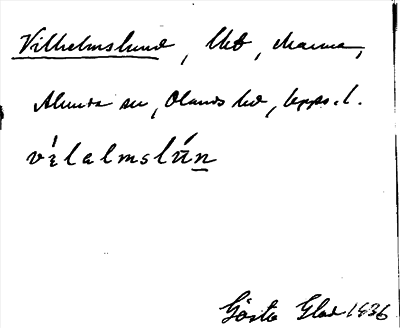 Vilhelmslund, Ut, Marma,
Alunda sn, Olands hd, Upps. l.
vílalmslún
Gösta Glad 1936